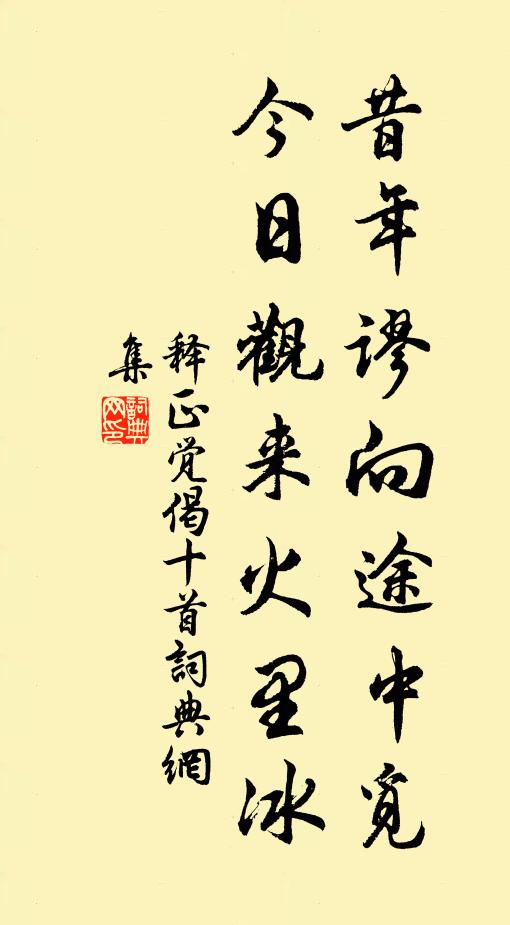 昔年謬向途中覓
今日觀来火里冰
释正觉偈十首詞典網
集
詞典
网印